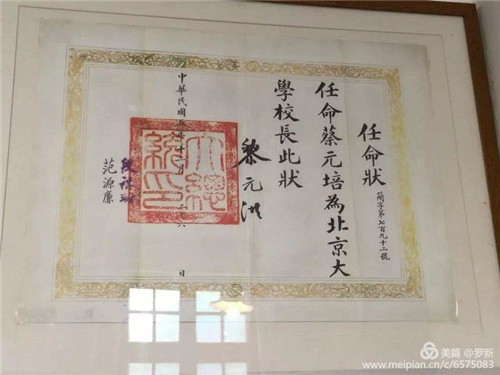 任命狀
簡字第七百九十二號
任命蔡元培為北京大
學校長此狀
黎元洪
大總統印
中華民國五年十二月二十六日
段祺瑞
范源廉
美篇 @罗新
www.meipian.cn/c/6575083